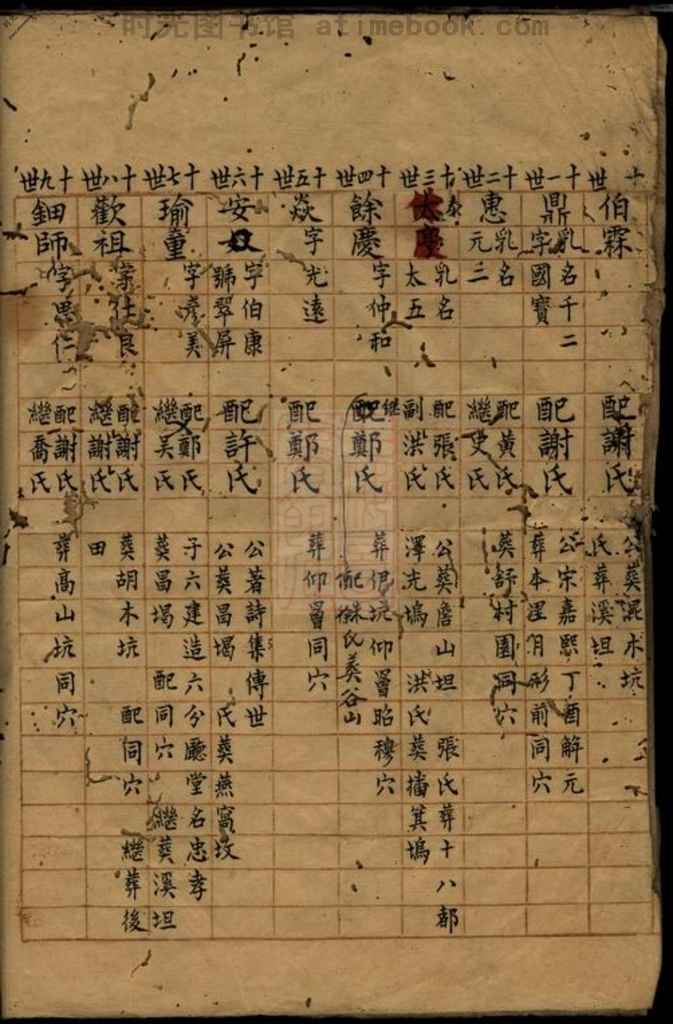 时光图书馆 atimebook.com
十世
伯霖
配謝氏
公葬混木坑
氏葬溪坦
十一世
鼎
乳名千二
字國寳
配謝氏
公宋嘉熙丁酉解元
葬本里月形前同穴
十二世
惠
乳名
元三
配黃氏
繼史氏
葬野村園同穴
十三世
泰
太慶
乳名
太五
配張氏
副洪氏
公葬詹山坦 張氏葬十八都
澤充塢 洪氏葬擂箕塢
十四世
餘慶
字仲和
繼
配鄭氏
葬伊坑仰署昭穆穴
配徐氏葬谷山
十五世
焱
字光遠
配鄭氏
葬仰署同穴
十六世
安奴
字伯康
號翠屏
配許氏
公著詩集傳世
公葬昌堨 氏葬燕窩坟
十七世
瑜童
字彥美
配鄭氏
繼吳氏
子六建造六分廳堂名忠孝
葬昌堨 配同穴 繼葬溪坦
十八世
歡祖
字仕良
配謝氏
繼謝氏
葬胡木坑 配同穴 繼葬後
田
十九世
鈿師
字思仁
配謝氏
繼喬氏
葬高山坑同穴